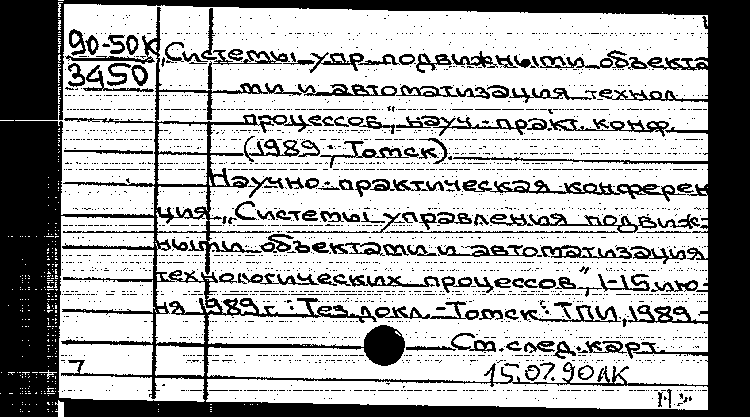 90-50К
3450
„Системы упр. подвижными объекта
ми и автоматизация технол.
процессов", науч.-практ. конф.
(1989; Томск).
Научно-практическая конферен
ция „Системы управления подвиж-
ными объектами и автоматизация
технологических процессов", 1-15 ию-
ня 1989 г.: Тез. докл.-Томск: ТПИ, 1989.-
См. след. карт.
7
15.07.90 ЛК